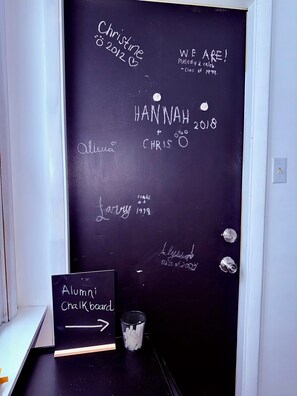 Christine
2012
WE ARE!
HANNAH 2018
+
CHRIS
Alumni
Larry
1978
Alyssa
Alumni
Chalkboard